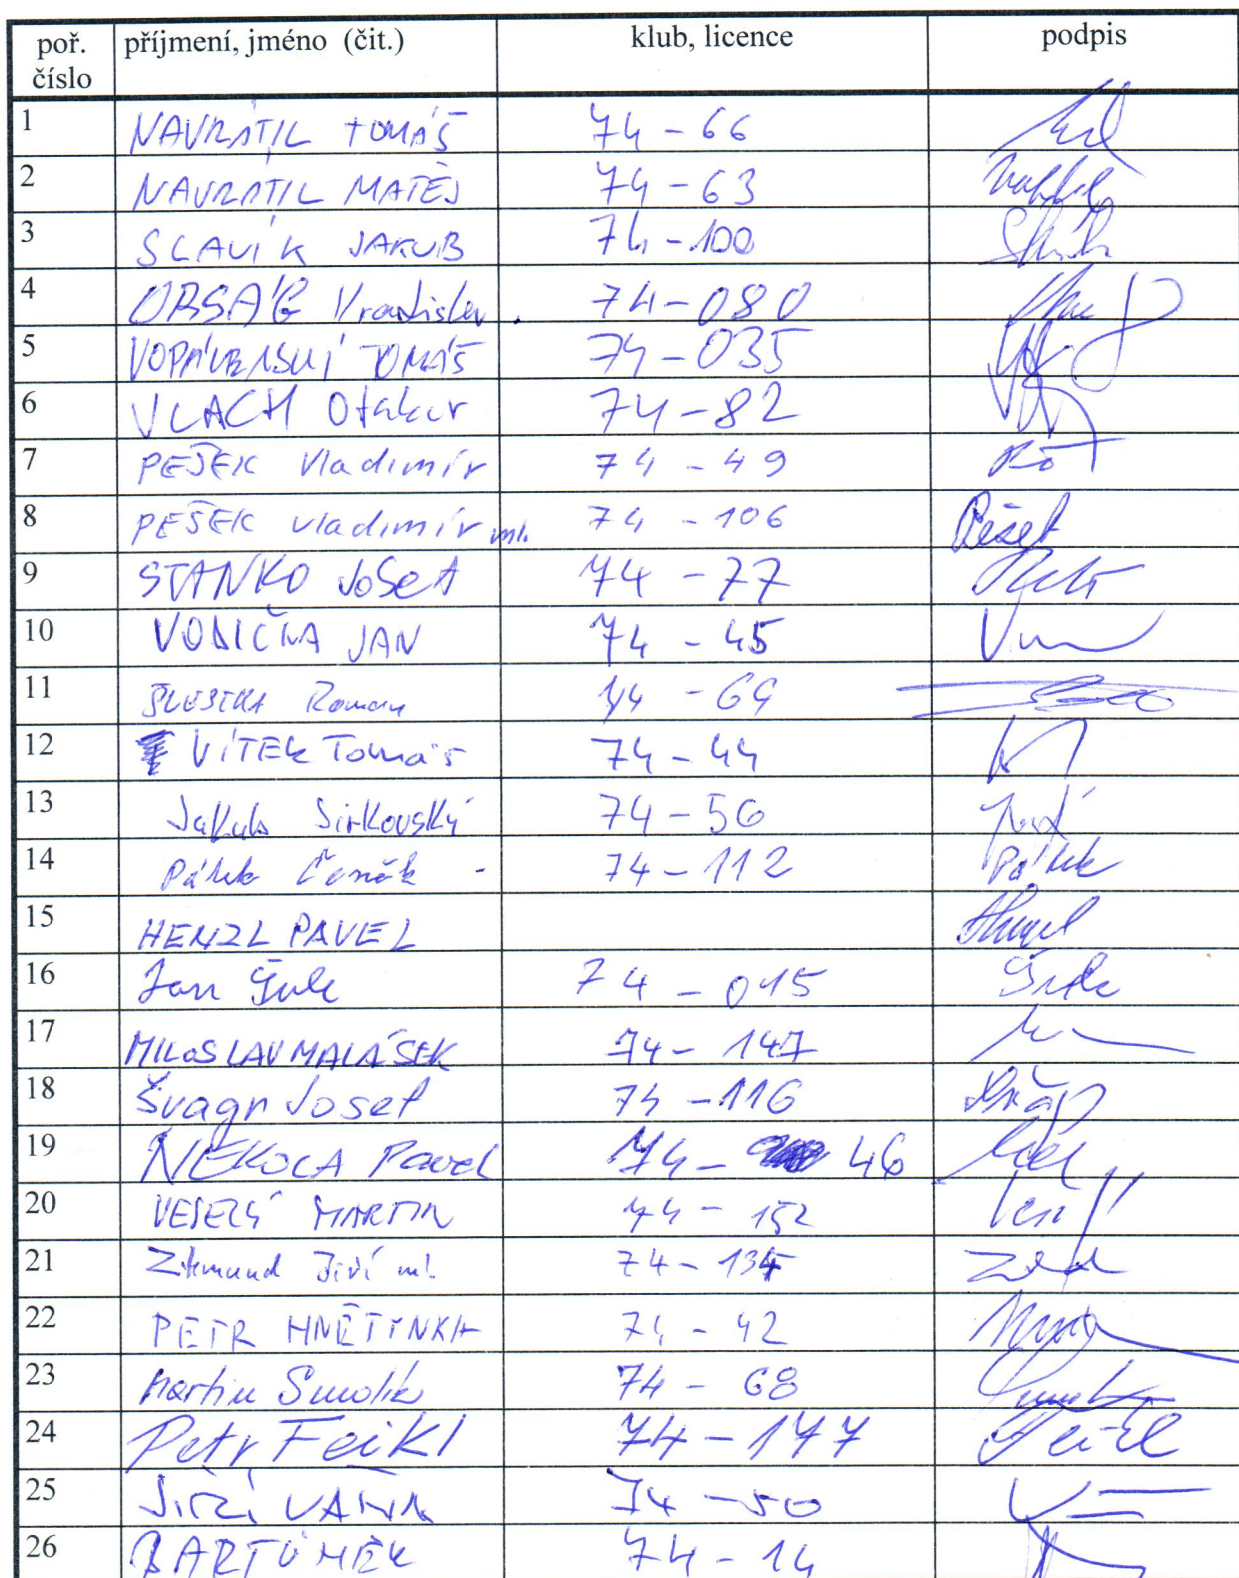 poř. číslo příjmení, jméno (čit.) klub, licence podpis
1 NAVRÁTIL TOMÁŠ 74-66
2 NAVRÁTIL MATĚJ 74-63
3 SLAVÍK JAKUB 74-100
4 ORSÁG Vratislav. 74-080
5 TOMÁŠ 74-035
6 VLACH Otakar 74-82
7 PEŠEK Vladimír 74-49
8 PEŠEK Vladimír ml. 74-106 Pešek
9 STANKO Josef 74-77
10 VODIČKA JAN 74-45
11 Roman 74-69
12 VÍTEK Tomáš 74-44
13 Jakub Sirkovský 74-56
14 Čeněk - 74-112
15 HENZL PAVEL
16 Jan 74-015
17 MILOSLAV MALÁSEK 74-147
18 Švagr Josef 74-116
19 NEKOLA Pavel 74- 46
20 VESELÝ MARTIN 74-152
21 Zikmund Jiří ml. 74-134
22 PETR HNĚTYNKA 74-42
23 Martin Smolík 74-68
24 Petr Feikl 74-177
25 JIŘÍ VAŇA 74-50
26 BARTŮNĚK 74-14